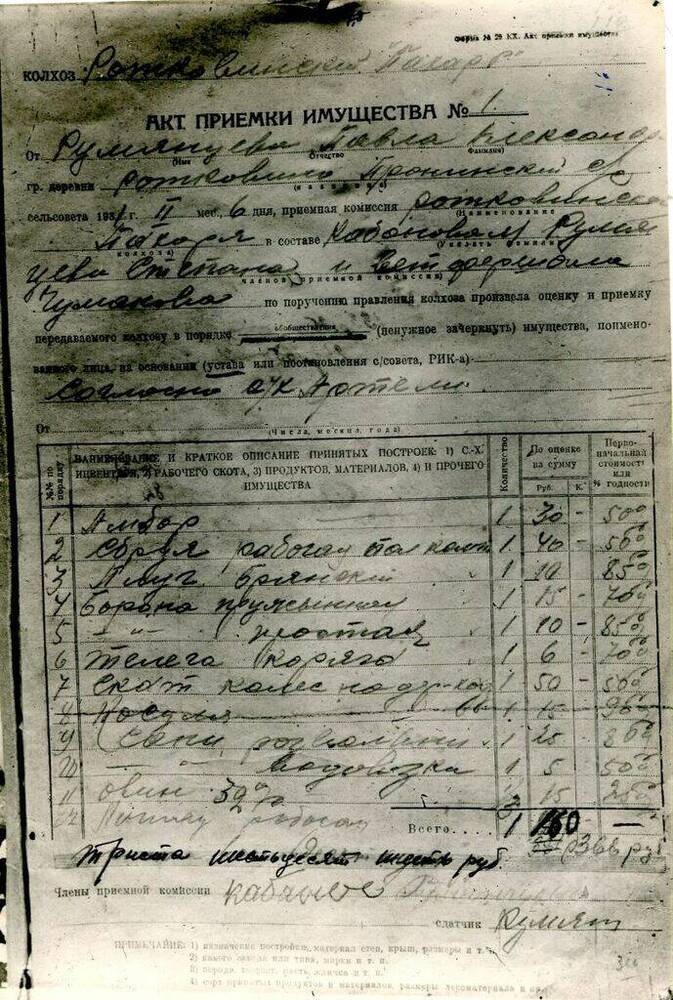 Форма № 29 КХ. Акт приемки имущества
КОЛХОЗ Ротковинский "Пахарь"
АКТ ПРИЕМКИ ИМУЩЕСТВА № 1.
От Румянцева Павла Александр
(Имя Отчество Фамилия)
гр. деревни Ротковино Пронинский с/с
(название)
сельсовета 1931 г. II мес. 6 дня, приемная комиссия Ротковинско
(Наименование
Пахаря в составе Кабановым Румян
колхоза) (Указать фамилии
цева Степана и
членов приемной комиссии)
Чумакова по поручению правления колхоза произвела оценку и приемку
передаваемого колхозу в порядке обобществления (ненужное зачеркнуть) имущества, поимено-
ванного лица, на основании (устава или постановления с/совета, РИК-а)
Согласно с/х Артели.
От
(Числа, месяца, года)
№№ по порядку НАИМЕНОВАНИЕ И КРАТКОЕ ОПИСАНИЕ ПРИНЯТЫХ ПОСТРОЕК: 1) С.-Х. ИНВЕНТАРЯ, 2) РАБОЧЕГО СКОТА, 3) ПРОДУКТОВ, МАТЕРИАЛОВ, 4) И ПРОЧЕГО ИМУЩЕСТВА Количество По оценке на сумму Руб. К. Перво-начальная стоимость или % годности
1 Амбар 1 30 - 50%
2 Сбруя рабочая пол компл 1 40 - 50%
3 Плуг Брянский 1 10 - 85%
4 Борона пружынная 1 15 - 70%
5 - " - простая 1 10 - 85%
6 Телега 1 6 - 70%
7 Скат колес на 1 50 - 50%
8 Косуля 1 15 - 90%
9 Сани 1 25 - 80%
10 - " - 1 5 - 50%
11 Овин 15 - 25%
12 Лошад рабочая
Всего.... 1 160 —
366 ру
Триста шестьдесят шесть руб.
Члены приемной комиссии Кабанов
сдатчик Румянц
ПРИМЕЧАНИЕ: 1) назначение постройки, материал стен, крыш, размеры и т.
2) какого завода или типа, марки и т. п.
3) порода, возраст, масть, кличка и т. п.
4) сорт принятых продуктов и материалов, размеры лесоматериала и пр.